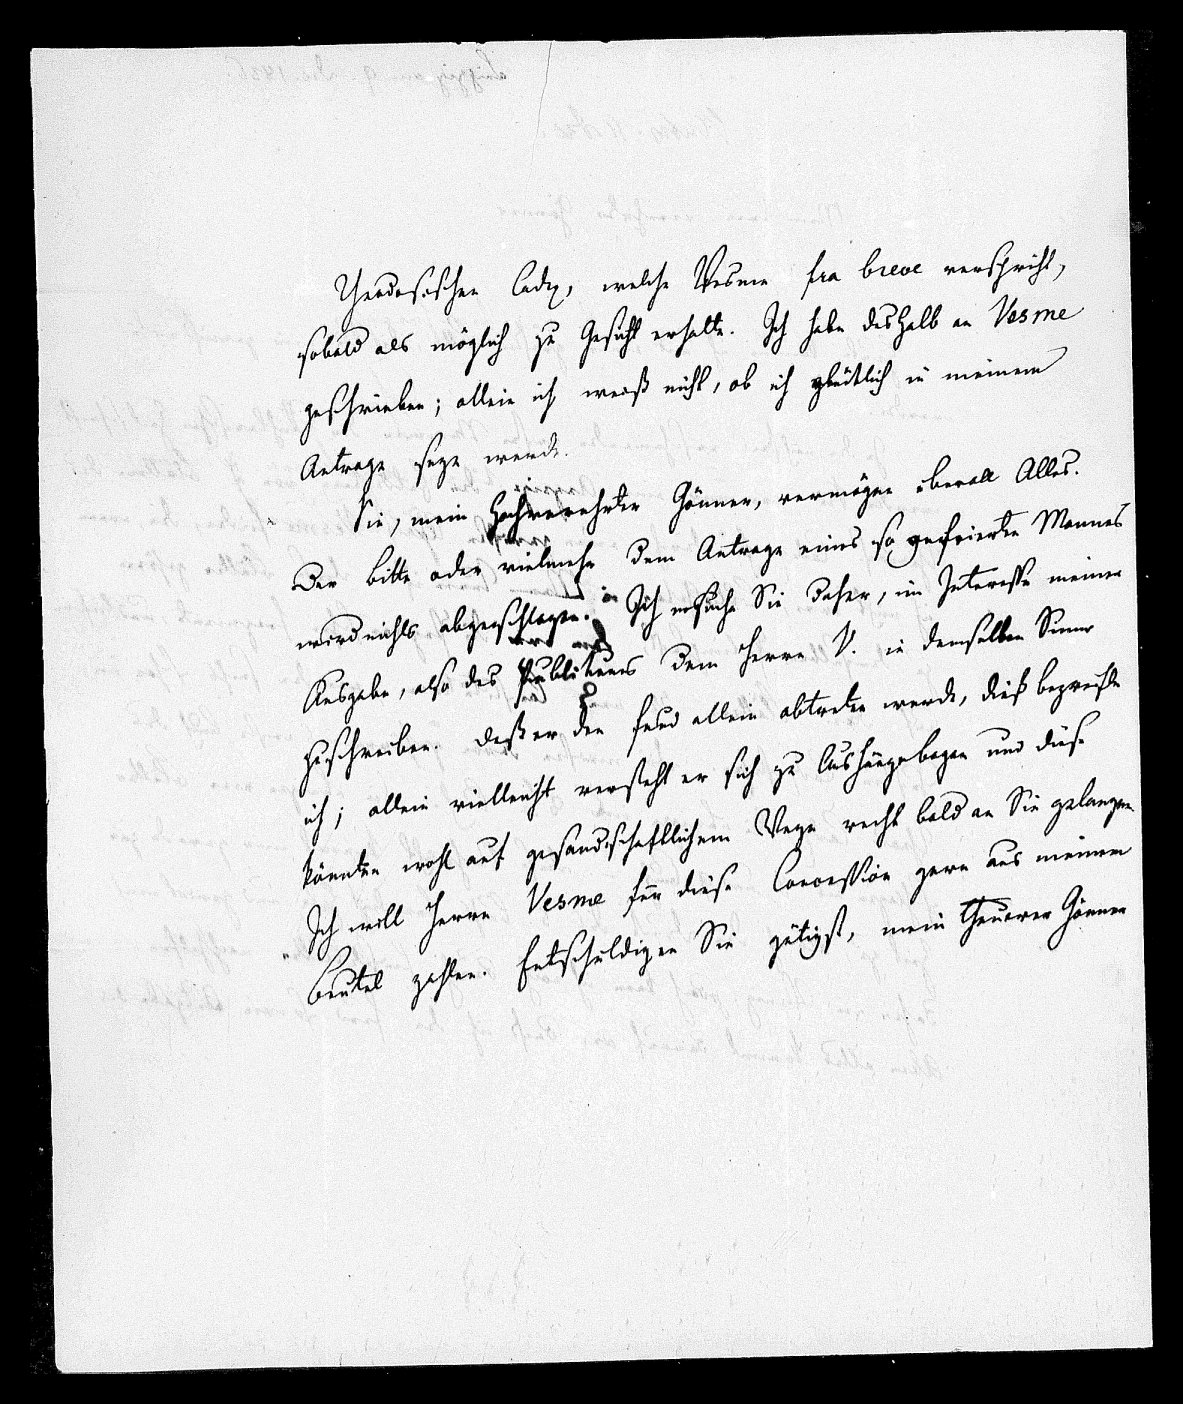 Theodosischen Codex, welche Vesme fra breve verspricht,
sobald als möglich zu Gesicht erhalte. Ich habe deshalb an Vesme
geschrieben; allein ich weiß nicht, ob ich glücklich in meinem
Antrage seyn werde.
Sie, mein Hochverehrter Gönner, vermögen überall Alles.
Der Bitte oder vielmehr dem Antrage eines so gefeierten Mannes
wird nichts abgeschlagen. Ich ersuche Sie daher, im Interesse meiner
Ausgabe, also des Publikums dem Herrn V. in demselben Sinne
zu schreiben. Daß er den Fund allein abtreten werde, dieß bezweifle
ich; allein vielleicht versteht er sich zu Aushängebogen und diese
könnten wohl auf gesandschaftlichem Wege recht bald an Sie gelangen.
Ich will Herrn Vesme für diese Concession gern aus meinem
Beutel zahlen. Entschuldigen Sie gütigst, mein theurer Gönner